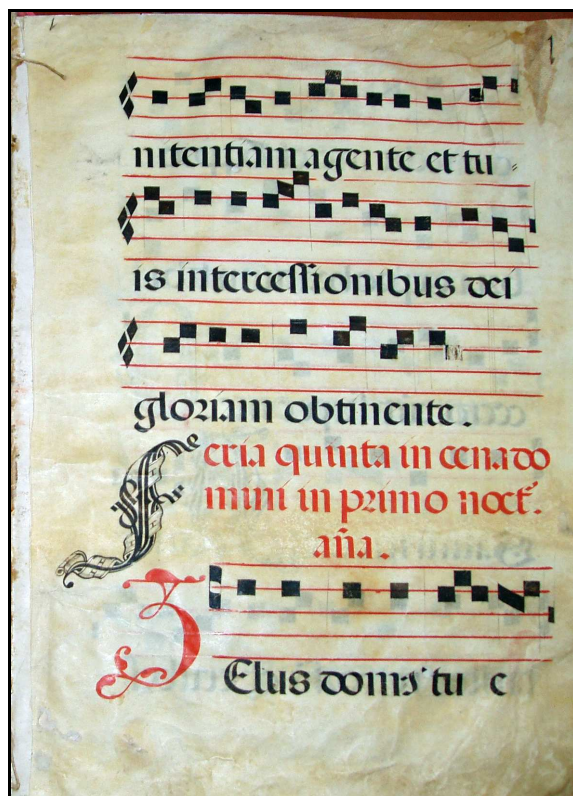 1
nitentiam agente et tu⸗
is intercessionibus dei
gloriam obtinente.
Feria quinta in cena do
mini in primo noct̃.
aña.
ZElus domꝰ tu e